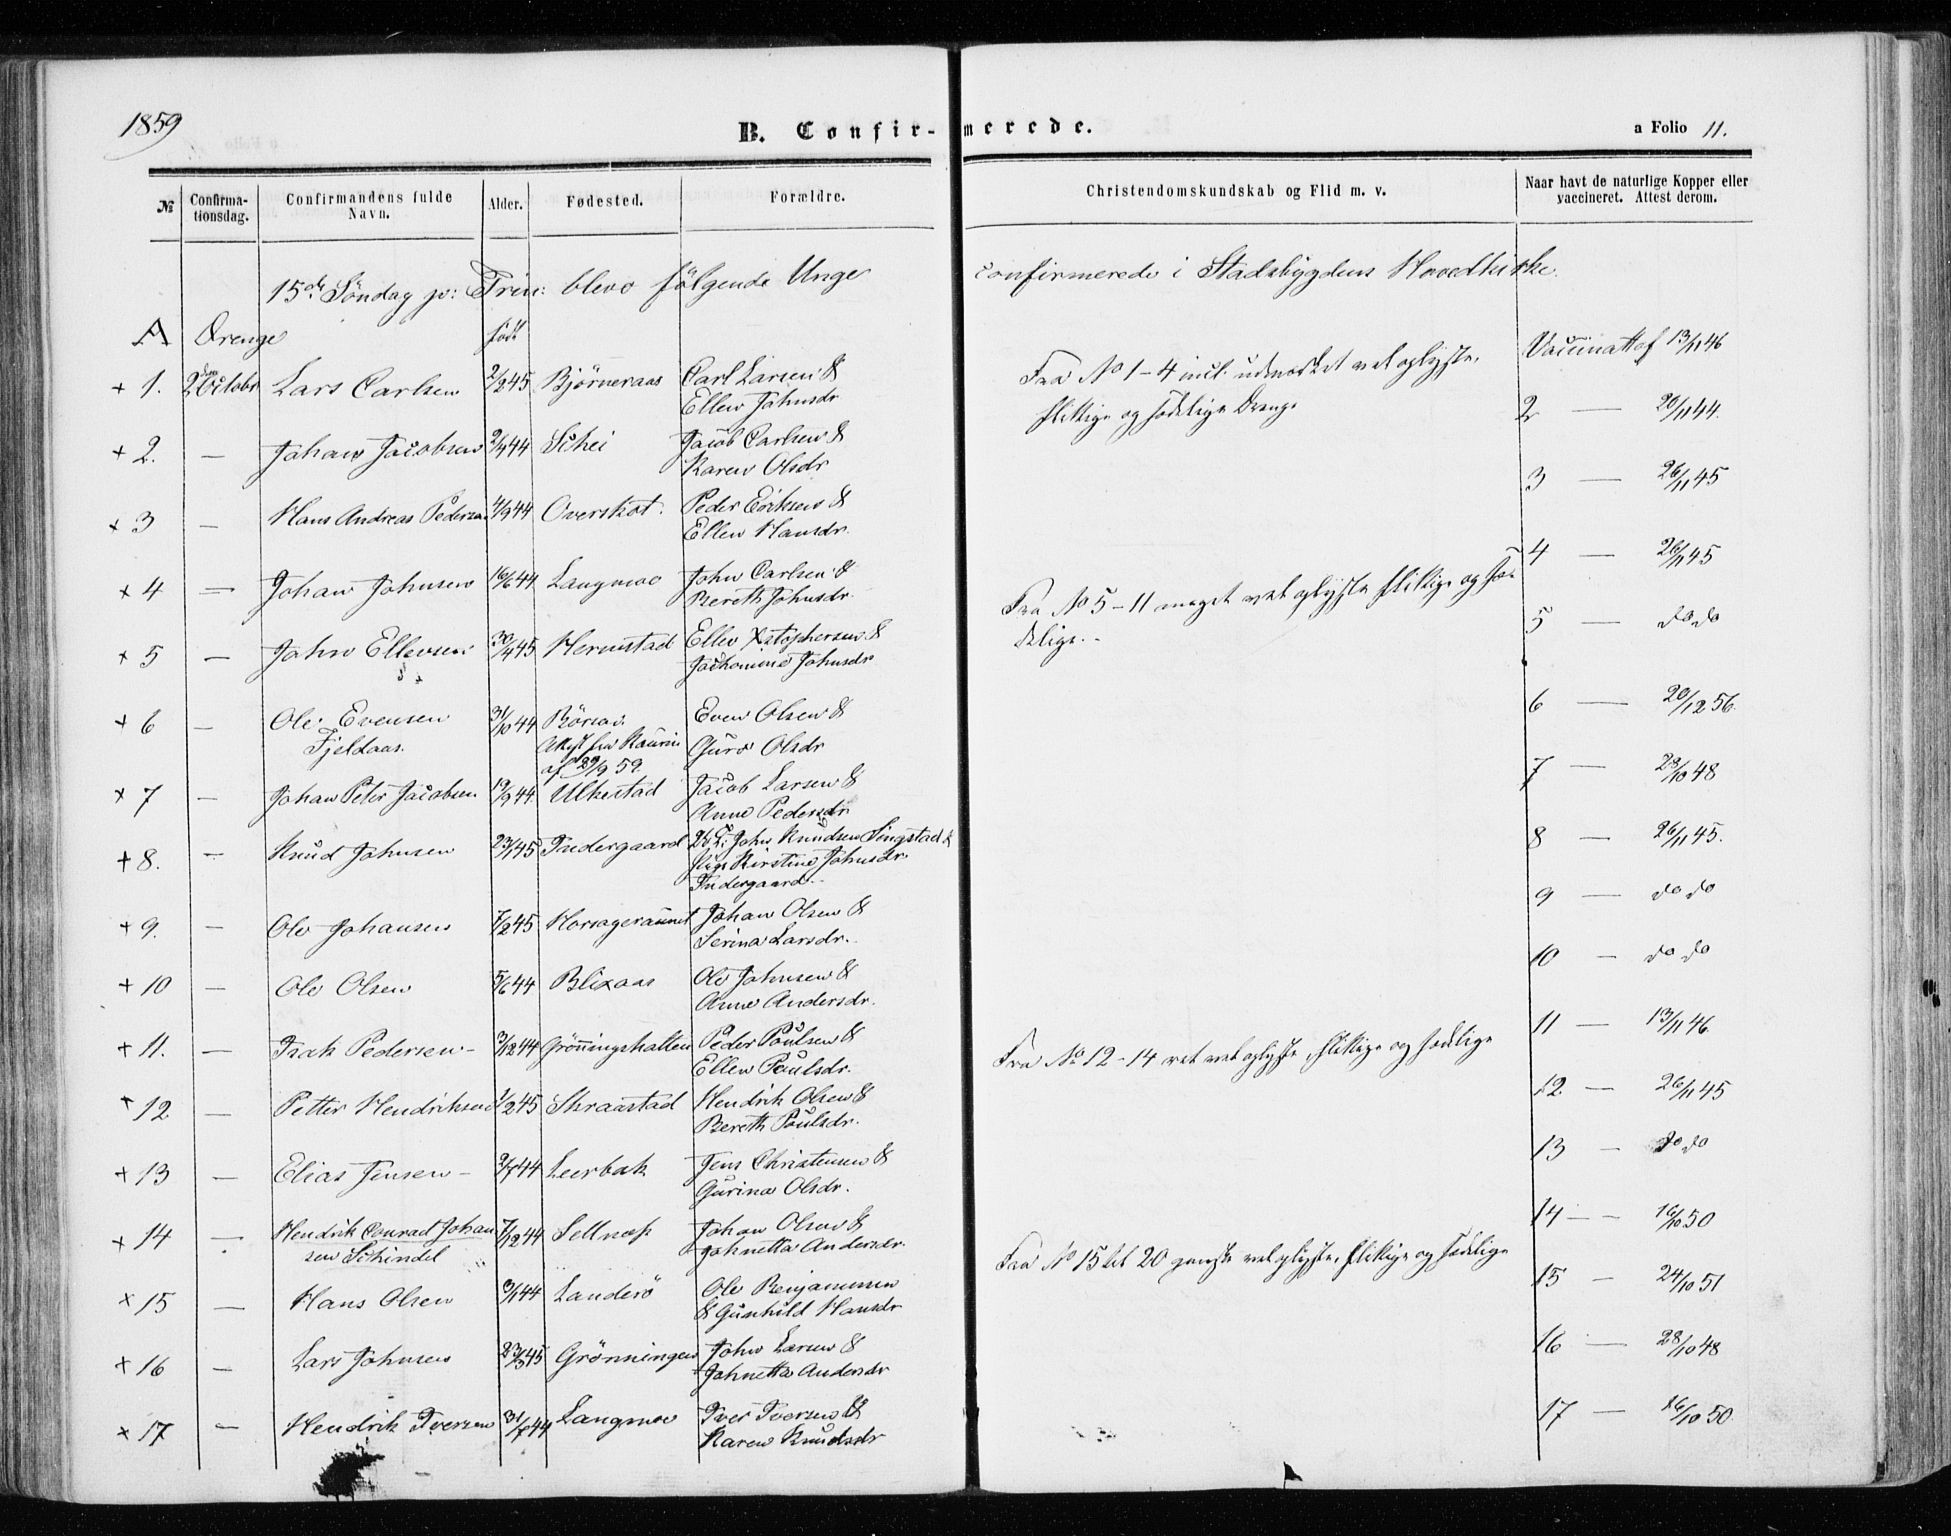 1859
B. Confir-merede.
a Folio 11.
№ Confirma-tionsdag. Confirmandens fulde Navn. Alder. Fødested. Forældre. Christendomskundskab og Flid m. v. Naar havt de naturlige Kopper eller vaccineret. Attest derom.
15de Søndag p: Trin: bleve følgende Unge confirmerede i Stadsbygdens Hovedkirke.
A Drenge født
+ 1. 2den Octobr Lars Carlsen 2/2 45 Bjørneraas Carl Larsen &
Ellen Johnsdr.
Fra No 1-4 incl. udmærket vel oplyste,
flittige og sædelige Drenge
Vaccinatt af 13/11 46
+ 2. — Johan Jacobsen 2/4 44 Schei Jacob Carlsen &
Karen Olsdr
2 — 20/11 44.
+ 3 — Hans Andreas Pedersen 4/9 44 Overskot. Peder Eriksen &
Ellen Hansdr.
3 — 26/11 45
+ 4 — Johan Johnsen 16/6 44 Langmoe John Carlsen &
Bereth Johnsdr.
4 — 26/11 45
Fra No 5-11 meget vel oplyste flittige og sæ-
delige.
+ 5 — John Ellevsen 30/4 45 Hermstad Ellev Xstophersen &
Jachomine Johnsdr
5 — do do
+ 6 — Ole Evensen
Fjeldaas.
31/10 44 Börsen
Attest fra
af 29/9 59.
Even Olsen &
Guro Olsdr
6 — 20/12 56.
+ 7 — Johan Peter Jacobsen 19/9 44. Ulkestad Jacob Larsen &
Anne Pedersdr
7 — 23/10 48
+ 8. — Knud Johnsen 23/1 45 Indergaard John Knudsen Singstad &
Pige Kirstine Johnsdr.
Indergaard.
8 — 26/11 45.
+ 9. — Ole Johansen 7/2 45 Horsageraunet Johan Olsen &
Serina Larsdr.
9 — do do
+ 10 — Ole Olsen 5/6 44 Blixaas Ole Johnsen &
Anne Andersdr.
10 — do do
+ 11. — Isak Pedersen 3/12 44 Grönningshalten Peder Poulsen &
Ellen Poulsdr.
11 — 13/11 46.
Fra No 12-14 ret vel oplyste, flittige og sædelige
+ 12 — Petter Hendriksen 1/2 45 Skraastad Hendrik Olsen &
Bereth Poulsdr.
12 — 26/11 45
+ 13 — Elias Jensen 2/7 44 Leerbak Jens Christensen &
Gurina Olsdr.
13 — do do
+ 14 — Hendrik Conrad Johan
sen Schindel
7/12 44 Sellnæs Johan Olsen &
Johnetta Andersdr.
14 — 16/10 50
Fra No 15 til 20 ganske vel oplyste, flittige og sædelige
+ 15 — Hans Olsen 3/1 44 Landerö Ole Benjaminsen
& Gunhild Hansdr
15 — 24/10 51
+ 16 — Lars Johnsen 23/3 45 Grönningen John Larsen &
Johnetta Andersdr
16 — 28/10 48
+ 17 — Hendrik Iversen 31/8 44 Langmoe Iver Iversen &
Karen Knudsdr
17 — 16/10 50.